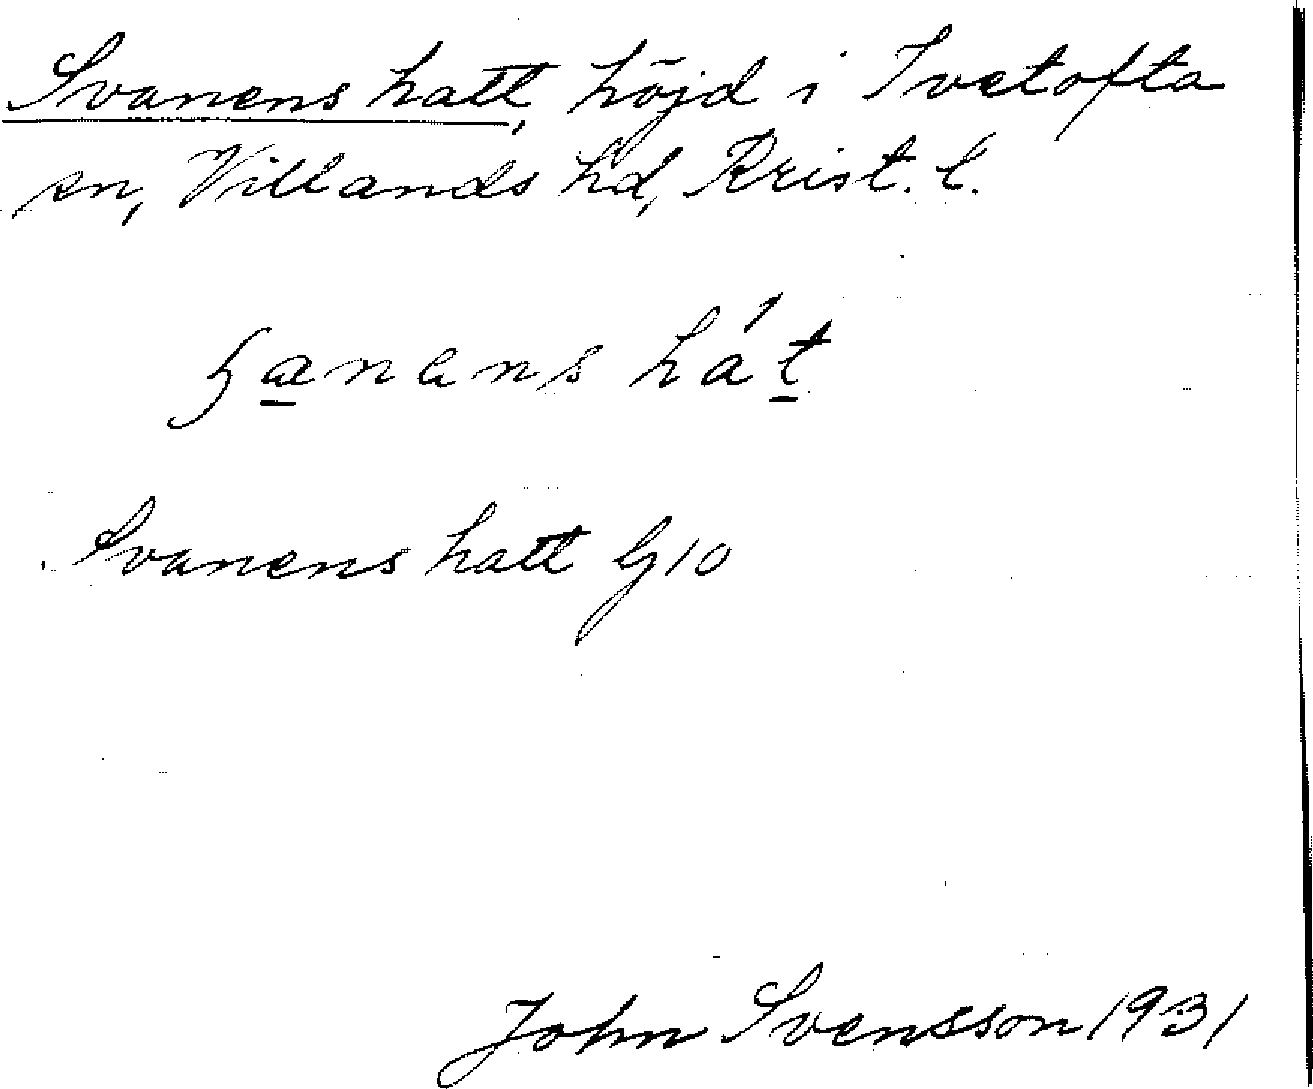 Svanens hatt, höjd i Ivetofta
sn, Villands hd, Krist. l.
hát
Svanens hatt G10
John Svensson 1931